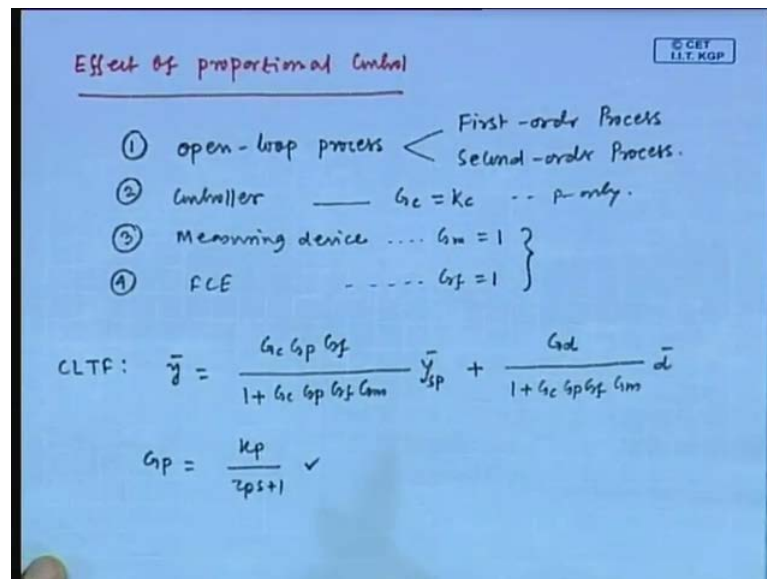 Effect of proportional Control
© CET
I.I.T. KGP
① open-loop process < First-order Process
Second-order Process.
② Controller —— Gc = Kc -- P-only.
③ Measuring device .... Gm = 1 }
④ FCE ----- Gf = 1
CLTF: ȳ = Gc Gp Gf / 1 + Gc Gp Gf Gm ȳsp + Gd / 1 + Gc Gp Gf Gm d̄
Gp = Kp / τps+1 ✓